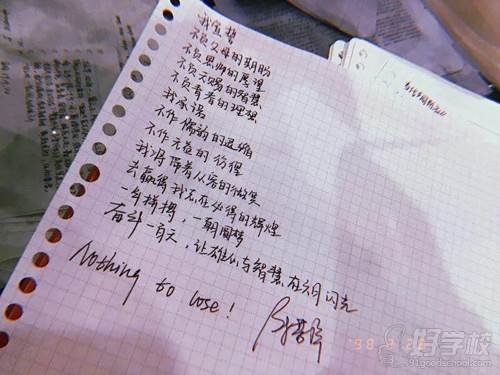 我宣誓
不负父母的期盼
不负恩师的厚望
不负天赐的智慧
不负青春的理想
我承诺
不作懦弱的退缩
不作无益的彷徨
我将带着从容的微笑
去赢得我志在必得的辉煌
一年拼搏，一朝圆梦
奋斗一百天，让雄心与智慧在六月闪光
Nothing to lose!
'98 2 22
好学校
91goodschool.com